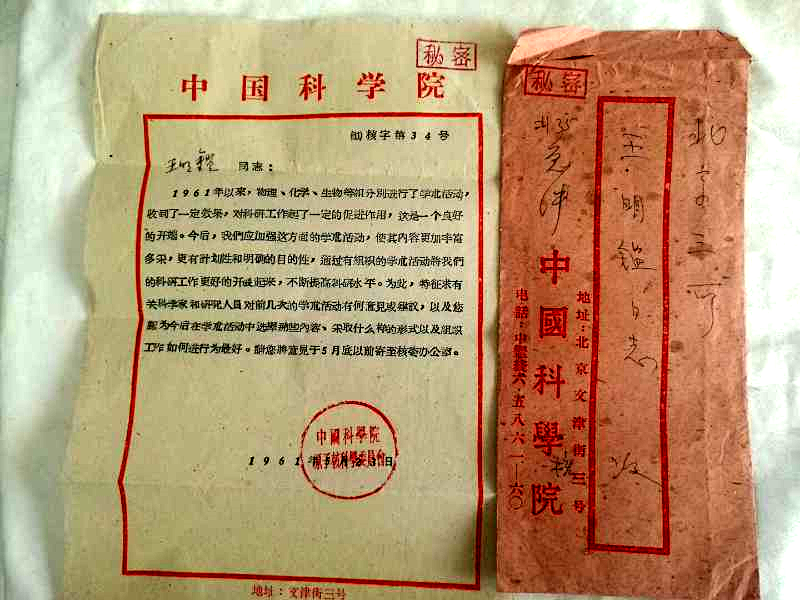 秘密
中国科学院
核字第34号
同志：
1961年以来，物理、化学、生物等组分别进行了学术活动，
收到了一定效果，对科研工作起了一定的促进作用，这是一个良好
的开端。今后，我们应加强这方面的学术活动，使其内容更加丰富
多采，更有计划性和明确的目的性，通过有组织的学术活动将我们
的科研工作更好的开展起来，不断提高科研水平。为此，特征求有
关科学家和研究人员对前几次的学术活动有何意见或建议，以及您
认为今后在学术活动中选择那些内容、采取什么样的形式以及组织
工作如何进行为最好。请您将意见于5月底以前寄至核委办公室。
中國科學院
1961年
日
地址：文津街三号
秘密
北京
王明鑑同志
收
中國科學院
地址：北京文津街三号